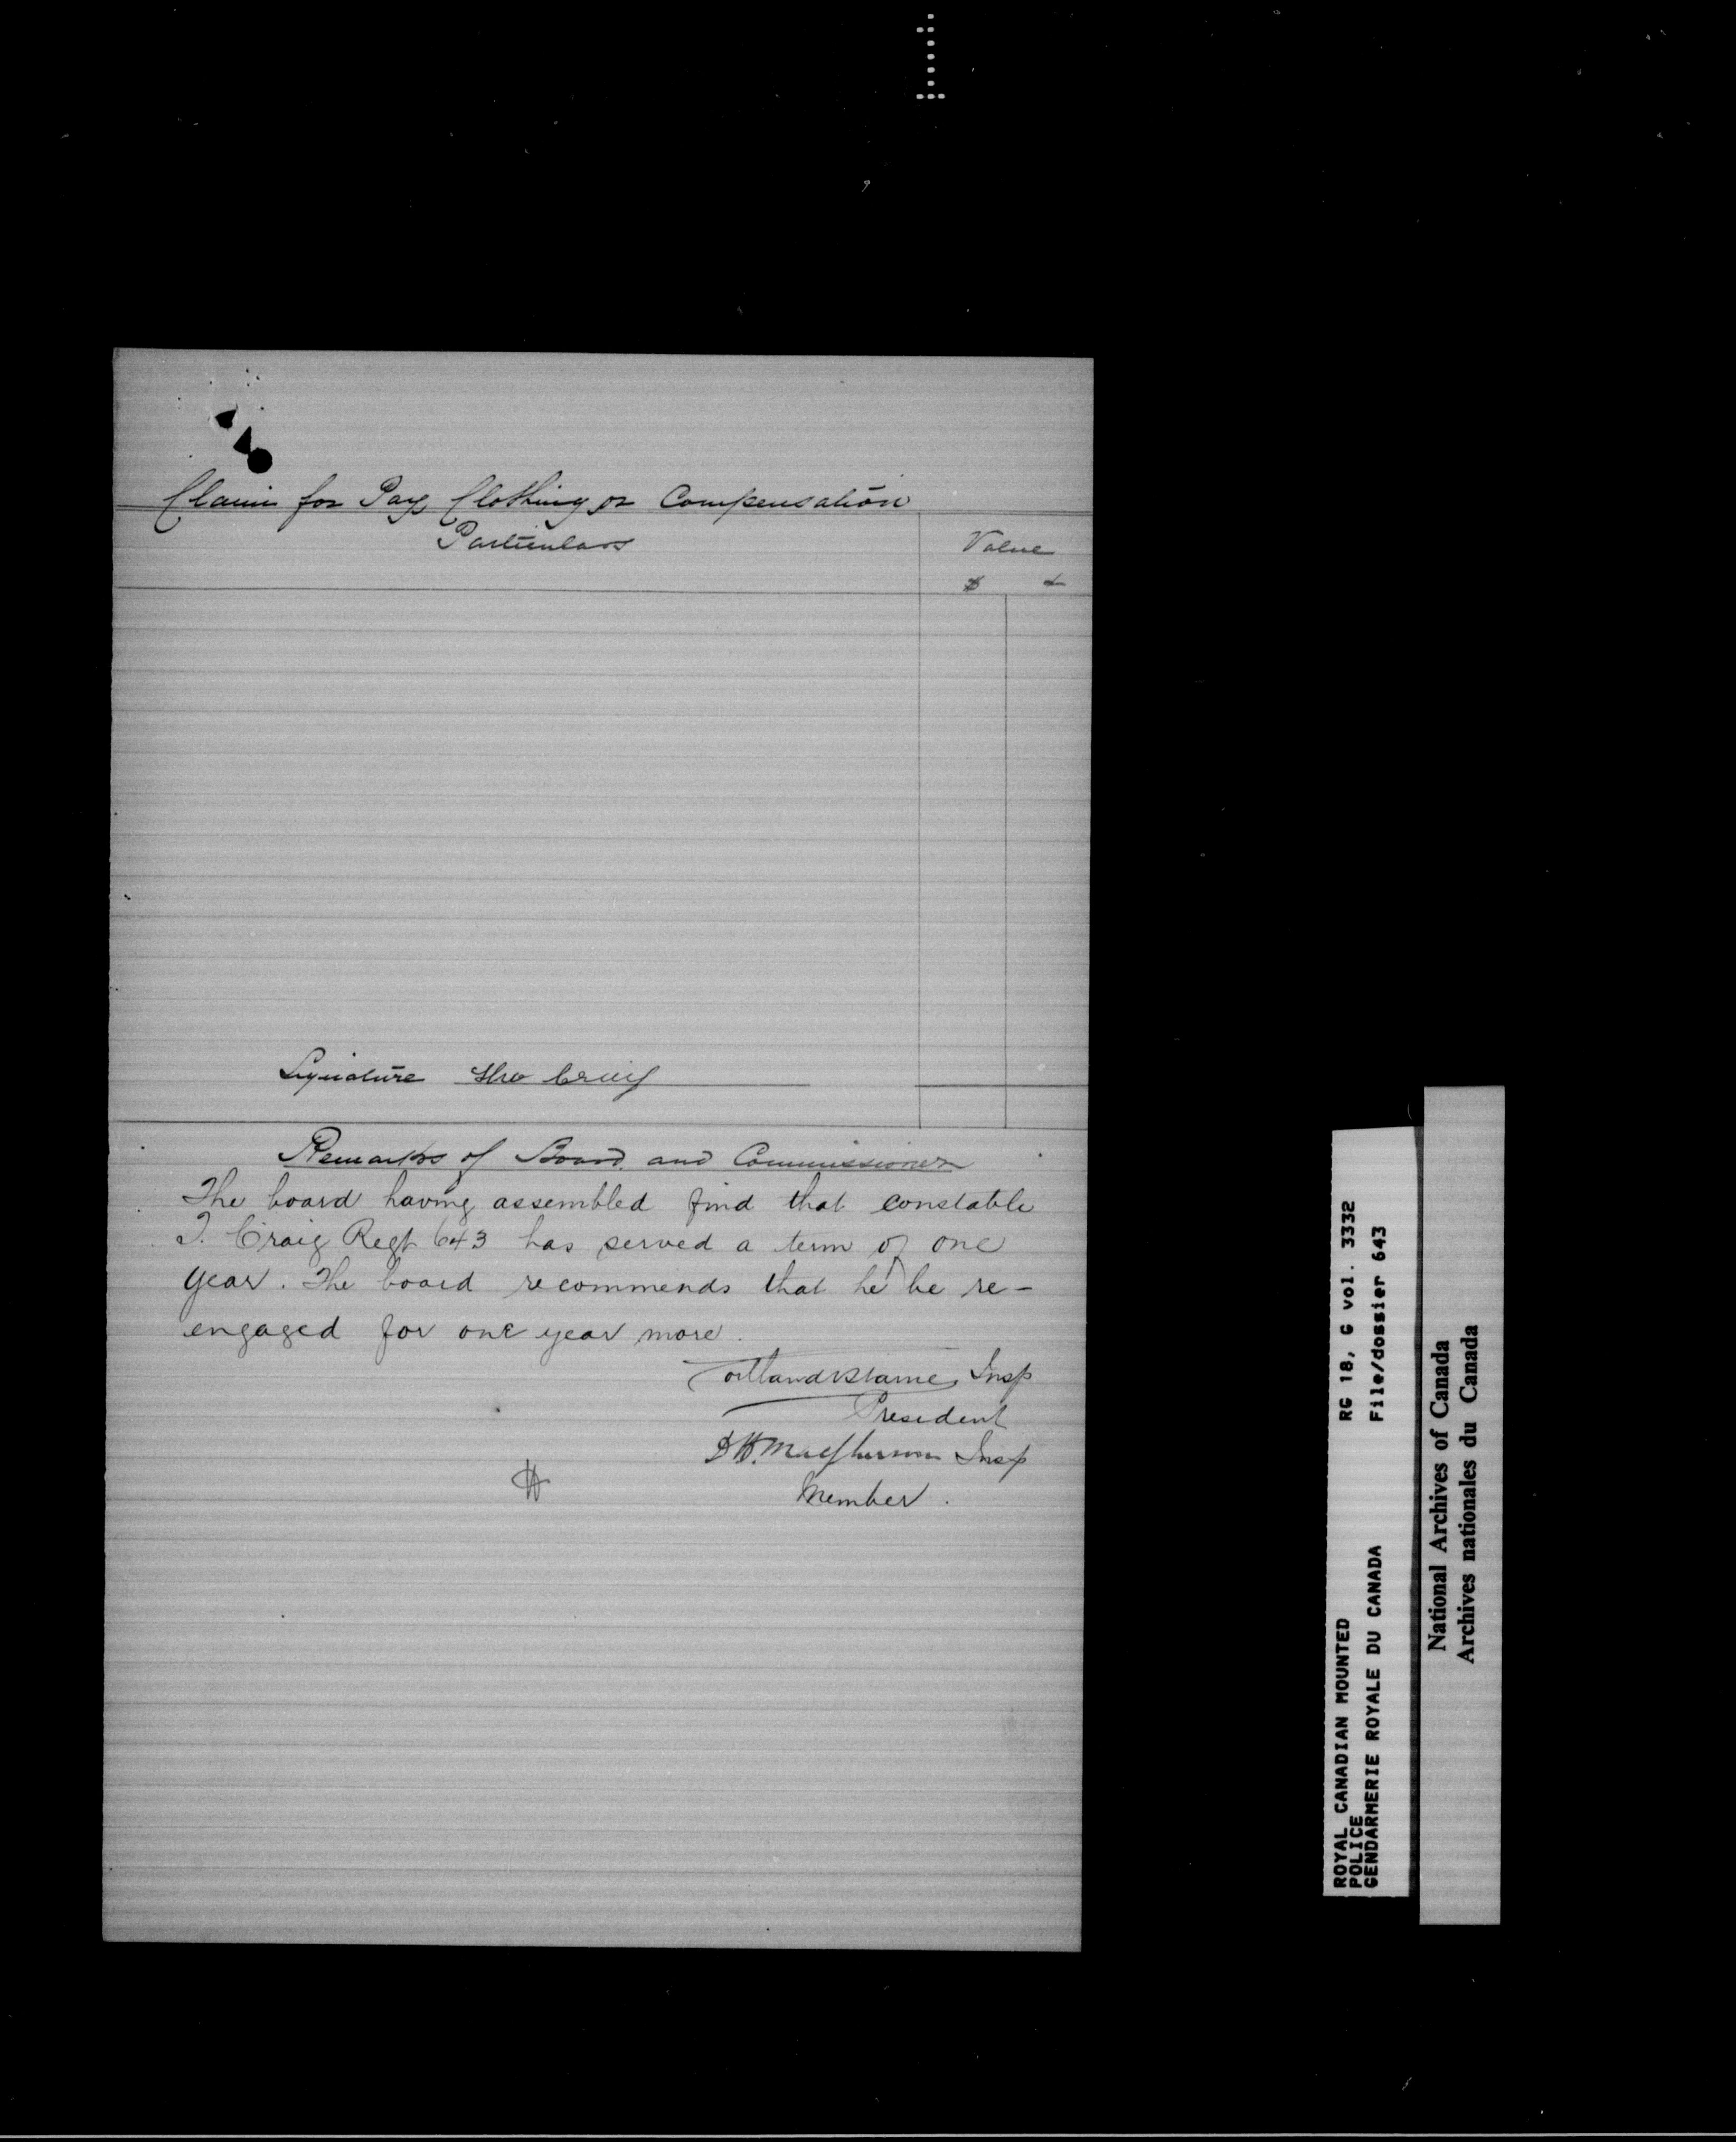 Claim for Pay Clothing or Compensation
Particulars
Value
$ ¢
Signature Tho Craig
Remarks of Board and Commissioner
The board having assembled find that constable
T. Craig Regt 643 has served a term of one
year. The board recommends that he be re-
engaged for one year more.
Insp
President
Insp
Member.
ROYAL CANADIAN MOUNTED
POLICE
GENDARMERIE ROYALE DU CANADA
RG 18, G vol. 3332
File/dossier 643
National Archives of Canada
Archives nationales du Canada